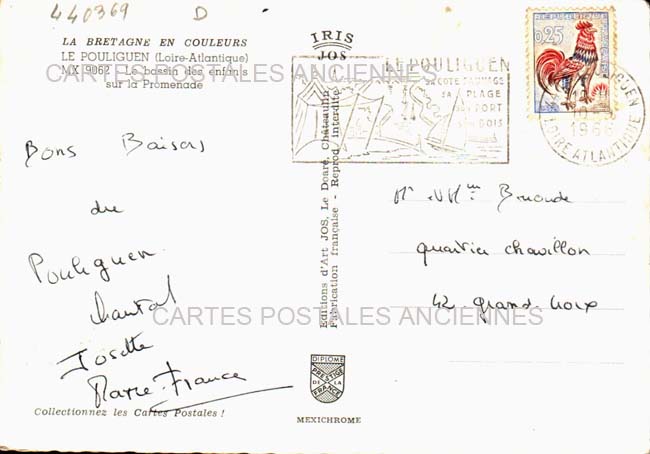 440369 D
LA BRETAGNE EN COULEURS
LE POULIGUEN (Loire-Atlantique)
MX 9062 - Le bassin des enfants
sur la Promenade
IRIS
JOS
LE POULIGUEN
SA COTE SAUVAGE
SA PLAGE
SON PORT
SON BOIS
0,25
1966
LOIRE ATLANTIQUE
CARTES POSTALES ANCIENNES
Bons Baisers
du
Pouliguen
Chantal
Josette
Marie-France
Editions d'Art JOS, Le Doaré, Châteaulin
Fabrication française - Reprod. interdite
Mr et Mme
quartier chavillon
42 grand-croix
CARTES POSTALES ANCIENNES
DIPLOME
PRESTIGE
DE LA
FRANCE
Collectionnez les Cartes Postales !
MEXICHROME